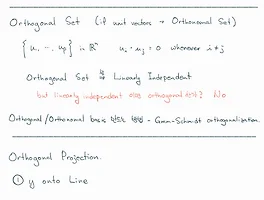 Orthogonal Set (if unit vectors → Orthonormal Set)
{u₁ ⋯, uₚ} in ℝⁿ uᵢ · uⱼ = 0 whenever i ≠ j
Orthogonal Set ⇒ Linearly Independent
but linearly independent 하면 orthogonal 하다? No
Orthogonal / Orthonormal basis 만드는 방법 - Gram-Schmidt orthogonalization.
Orthogonal Projection.
① y onto Line